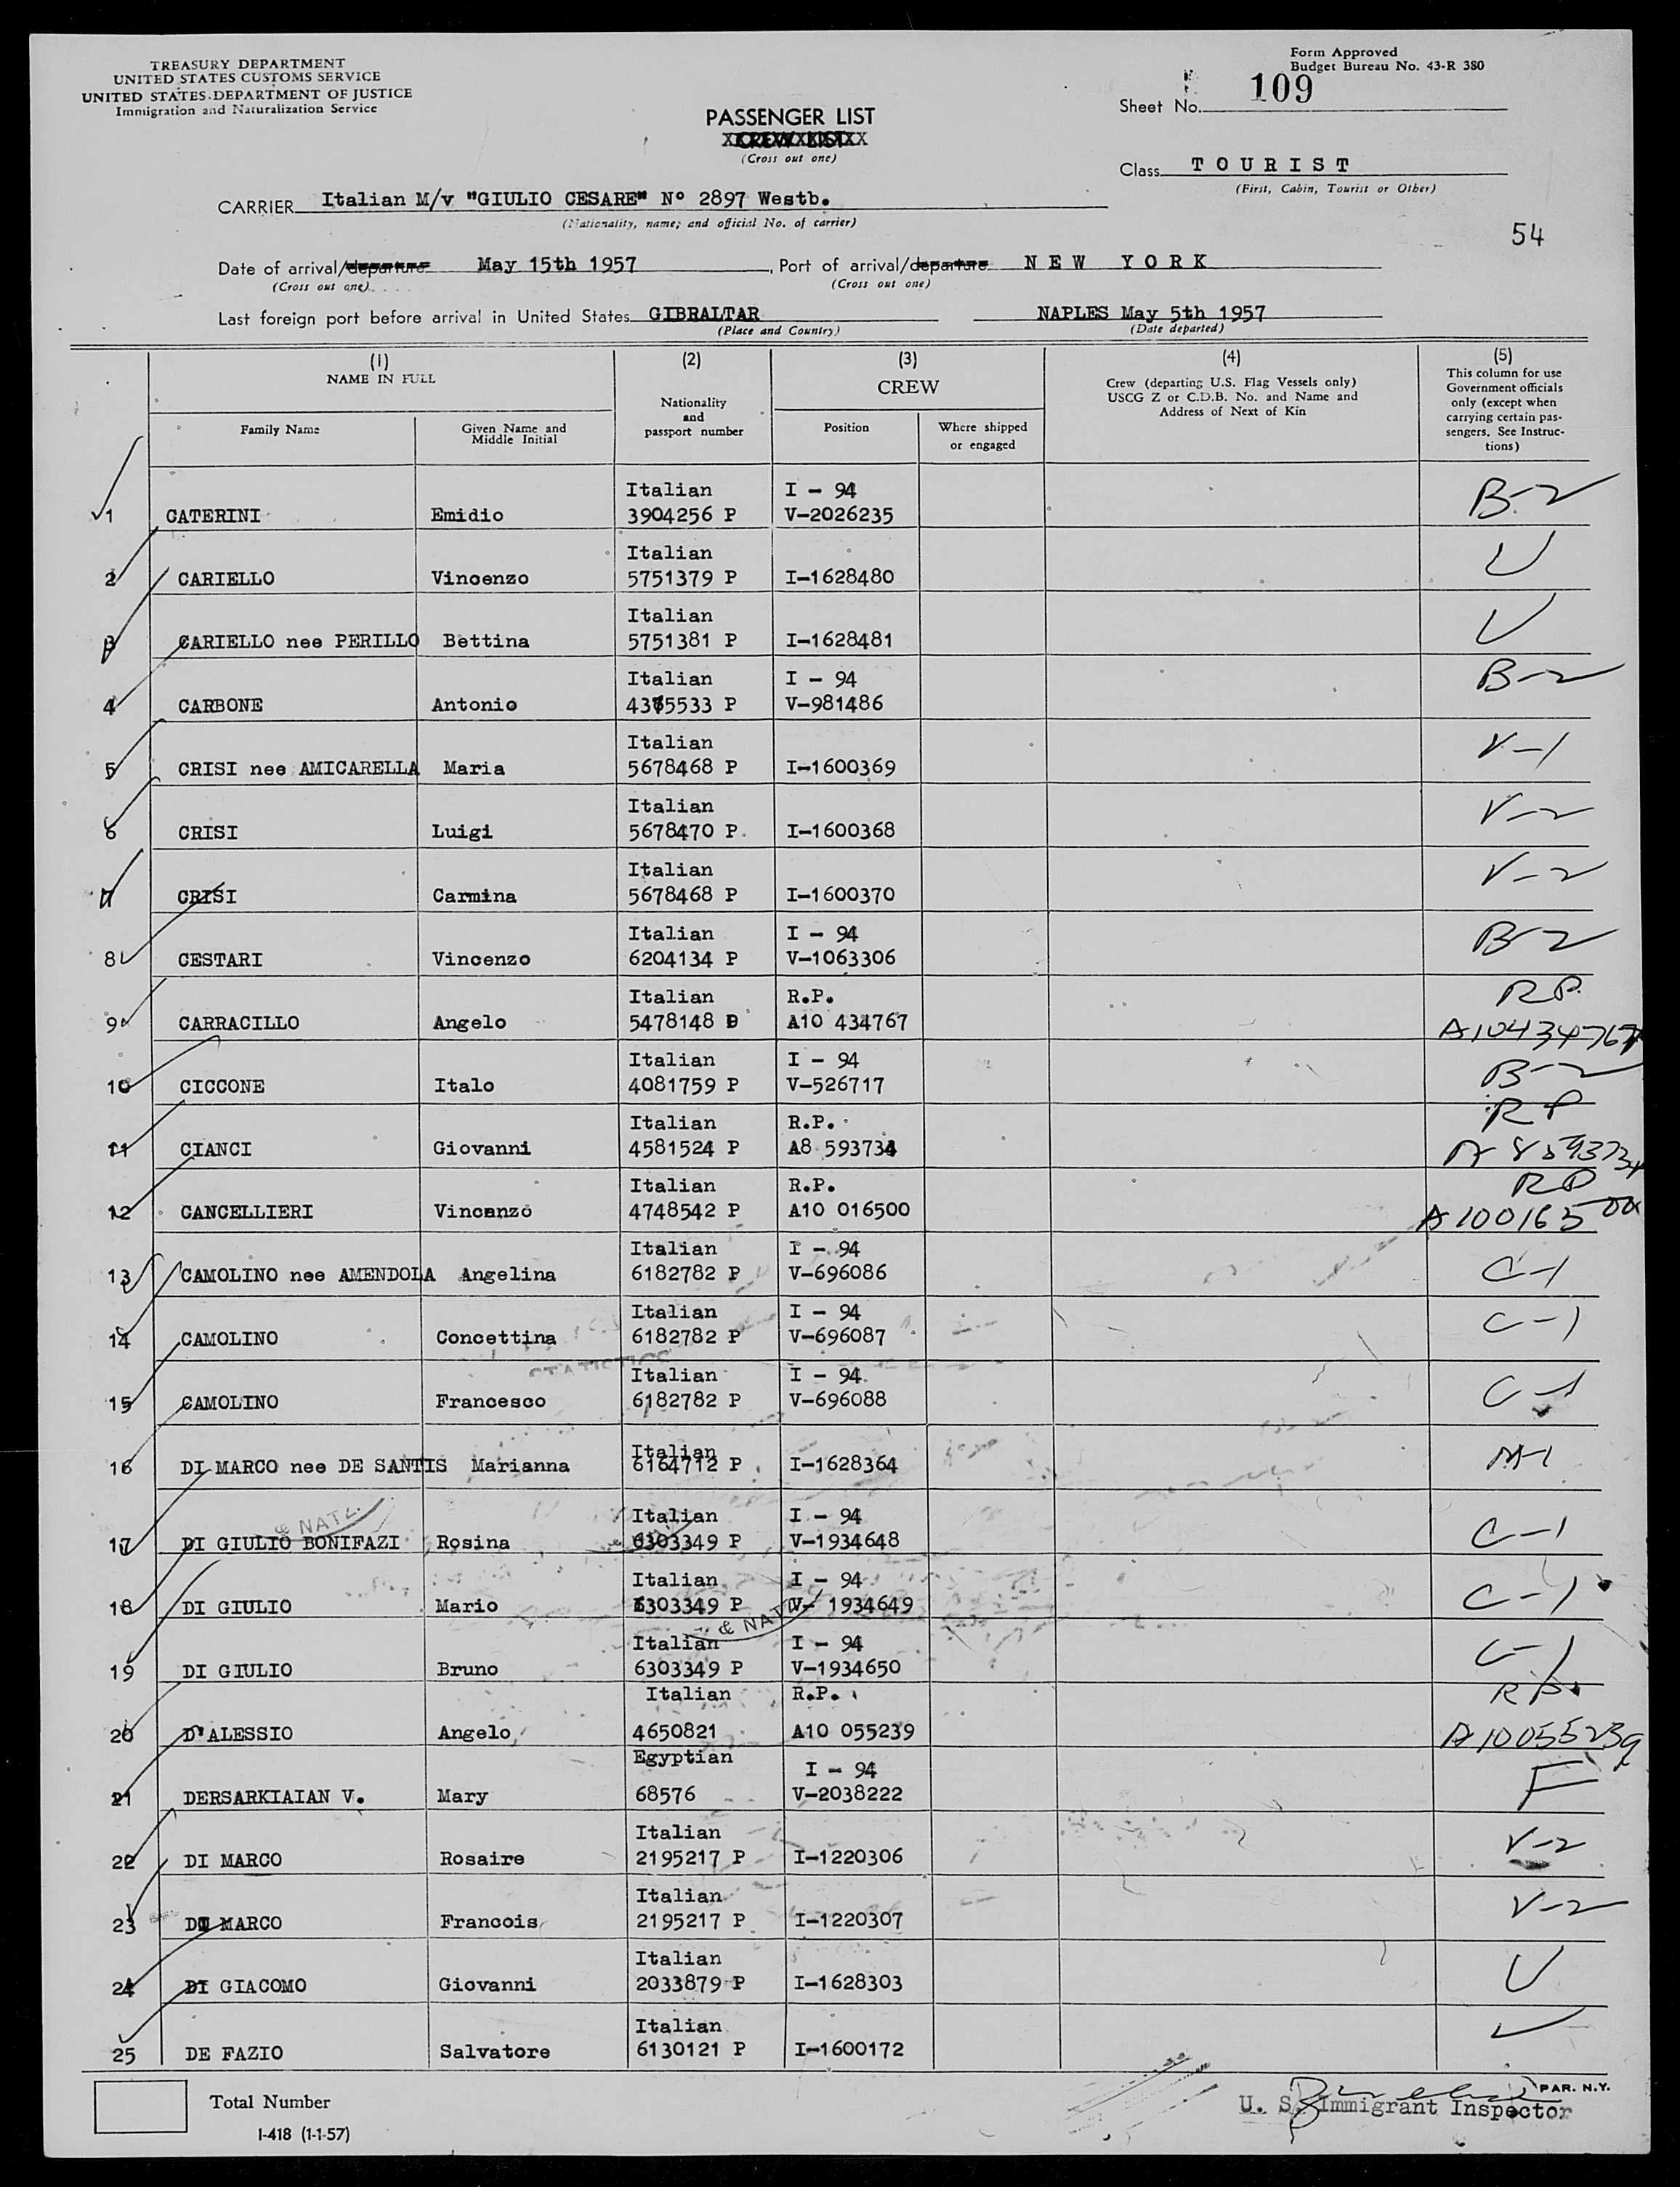 TREASURY DEPARTMENT
UNITED STATES CUSTOMS SERVICE
UNITED STATES DEPARTMENT OF JUSTICE
Immigration and Naturalization Service
Form Approved
Budget Bureau No. 43-R 380
Sheet No. 109
PASSENGER LIST
CREW LIST
(Cross out one)
Class TOURIST
(First, Cabin, Tourist or Other)
CARRIER Italian M/v "GIULIO CESARE" Nº 2897 Westb.
(Nationality, name, and official No. of carrier)
54
Date of arrival/departure May 15th 1957, Port of arrival/departure NEW YORK
(Cross out one) (Cross out one)
Last foreign port before arrival in United States GIBRALTAR NAPLES May 5th 1957
(Place and Country) (Date departed)
(1) NAME IN FULL
Family Name
Given Name and Middle Initial
(2)
Nationality and passport number
(3)
CREW
Position
Where shipped or engaged
(4)
Crew (departing U.S. Flag Vessels only)
USCG Z or C.D.B. No. and Name and
Address of Next of Kin
(5)
This column for use
Government officials
only (except when
carrying certain pas-
sengers. See Instruc-
tions)
Italian I - 94 B-2
1 CATERINI Emidio 3904256 P V-2026235
Italian U
2 CARIELLO Vincenzo 5751379 P I-1628480
Italian U
3 CARIELLO nee PERILLO Bettina 5751381 P I-1628481
Italian I - 94 B-2
4 CARBONE Antonio 4375533 P V-981486
Italian V-1
5 CRISI nee AMICARELLA Maria 5678468 P I-1600369
Italian V-2
6 CRISI Luigi 5678470 P. I-1600368
Italian V-2
7 CRISI Carmina 5678468 P I-1600370
Italian I - 94 B-2
8 CESTARI Vincenzo 6204134 P V-1063306
Italian R.P. RP.
9 CARRACILLO Angelo 5478148 P A10 434767 A10434767
Italian I - 94 B-2
10 CICCONE Italo 4081759 P V-526717
Italian R.P. RP
11 CIANCI Giovanni 4581524 P A8 593734 A 8593734
Italian R.P. RP
12 CANCELLIERI Vincenzo 4748542 P A10 016500 A10016500
Italian I - 94 C-1
13 CAMOLINO nee AMENDOLA Angelina 6182782 P V-696086
Italian I - 94 C-1
14 CAMOLINO Concettina 6182782 P V-696087
STATISTICS
Italian I - 94 C-1
15 CAMOLINO Francesco 6182782 P V-696088
Italian M-1
16 DI MARCO nee DE SANTIS Marianna 6164712 P I-1628364
& NATZ.
Italian I - 94 C-1
17 DI GIULIO BONIFAZI Rosina 6303349 P V-1934648
Italian I - 94 C-1
18 DI GIULIO Mario 6303349 P V- 1934649
& NATZ
Italian I - 94 C-1
19 DI GIULIO Bruno 6303349 P V-1934650
Italian R.P. RP.
20 D'ALESSIO Angelo 4650821 A10 055239 A10055239
Egyptian I - 94 F
21 DERSARKIAIAN V. Mary 68576 V-2038222
Italian V-2
22 DI MARCO Rosaire 2195217 P I-1220306
Italian V-2
23 DI MARCO Francois 2195217 P I-1220307
Italian U
24 DI GIACOMO Giovanni 2033879 P I-1628303
Italian
25 DE FAZIO Salvatore 6130121 P I-1600172
Total Number
I-418 (1-1-57)
PAR. N.Y.
U. S. Immigrant Inspector